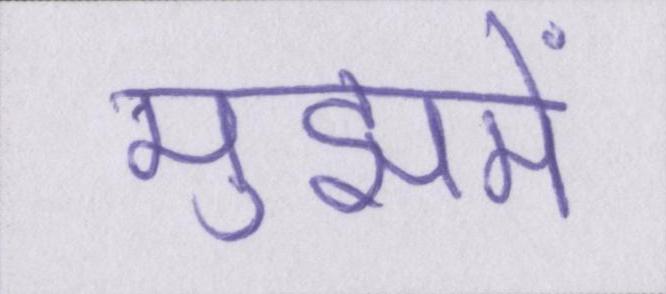 मुझमें